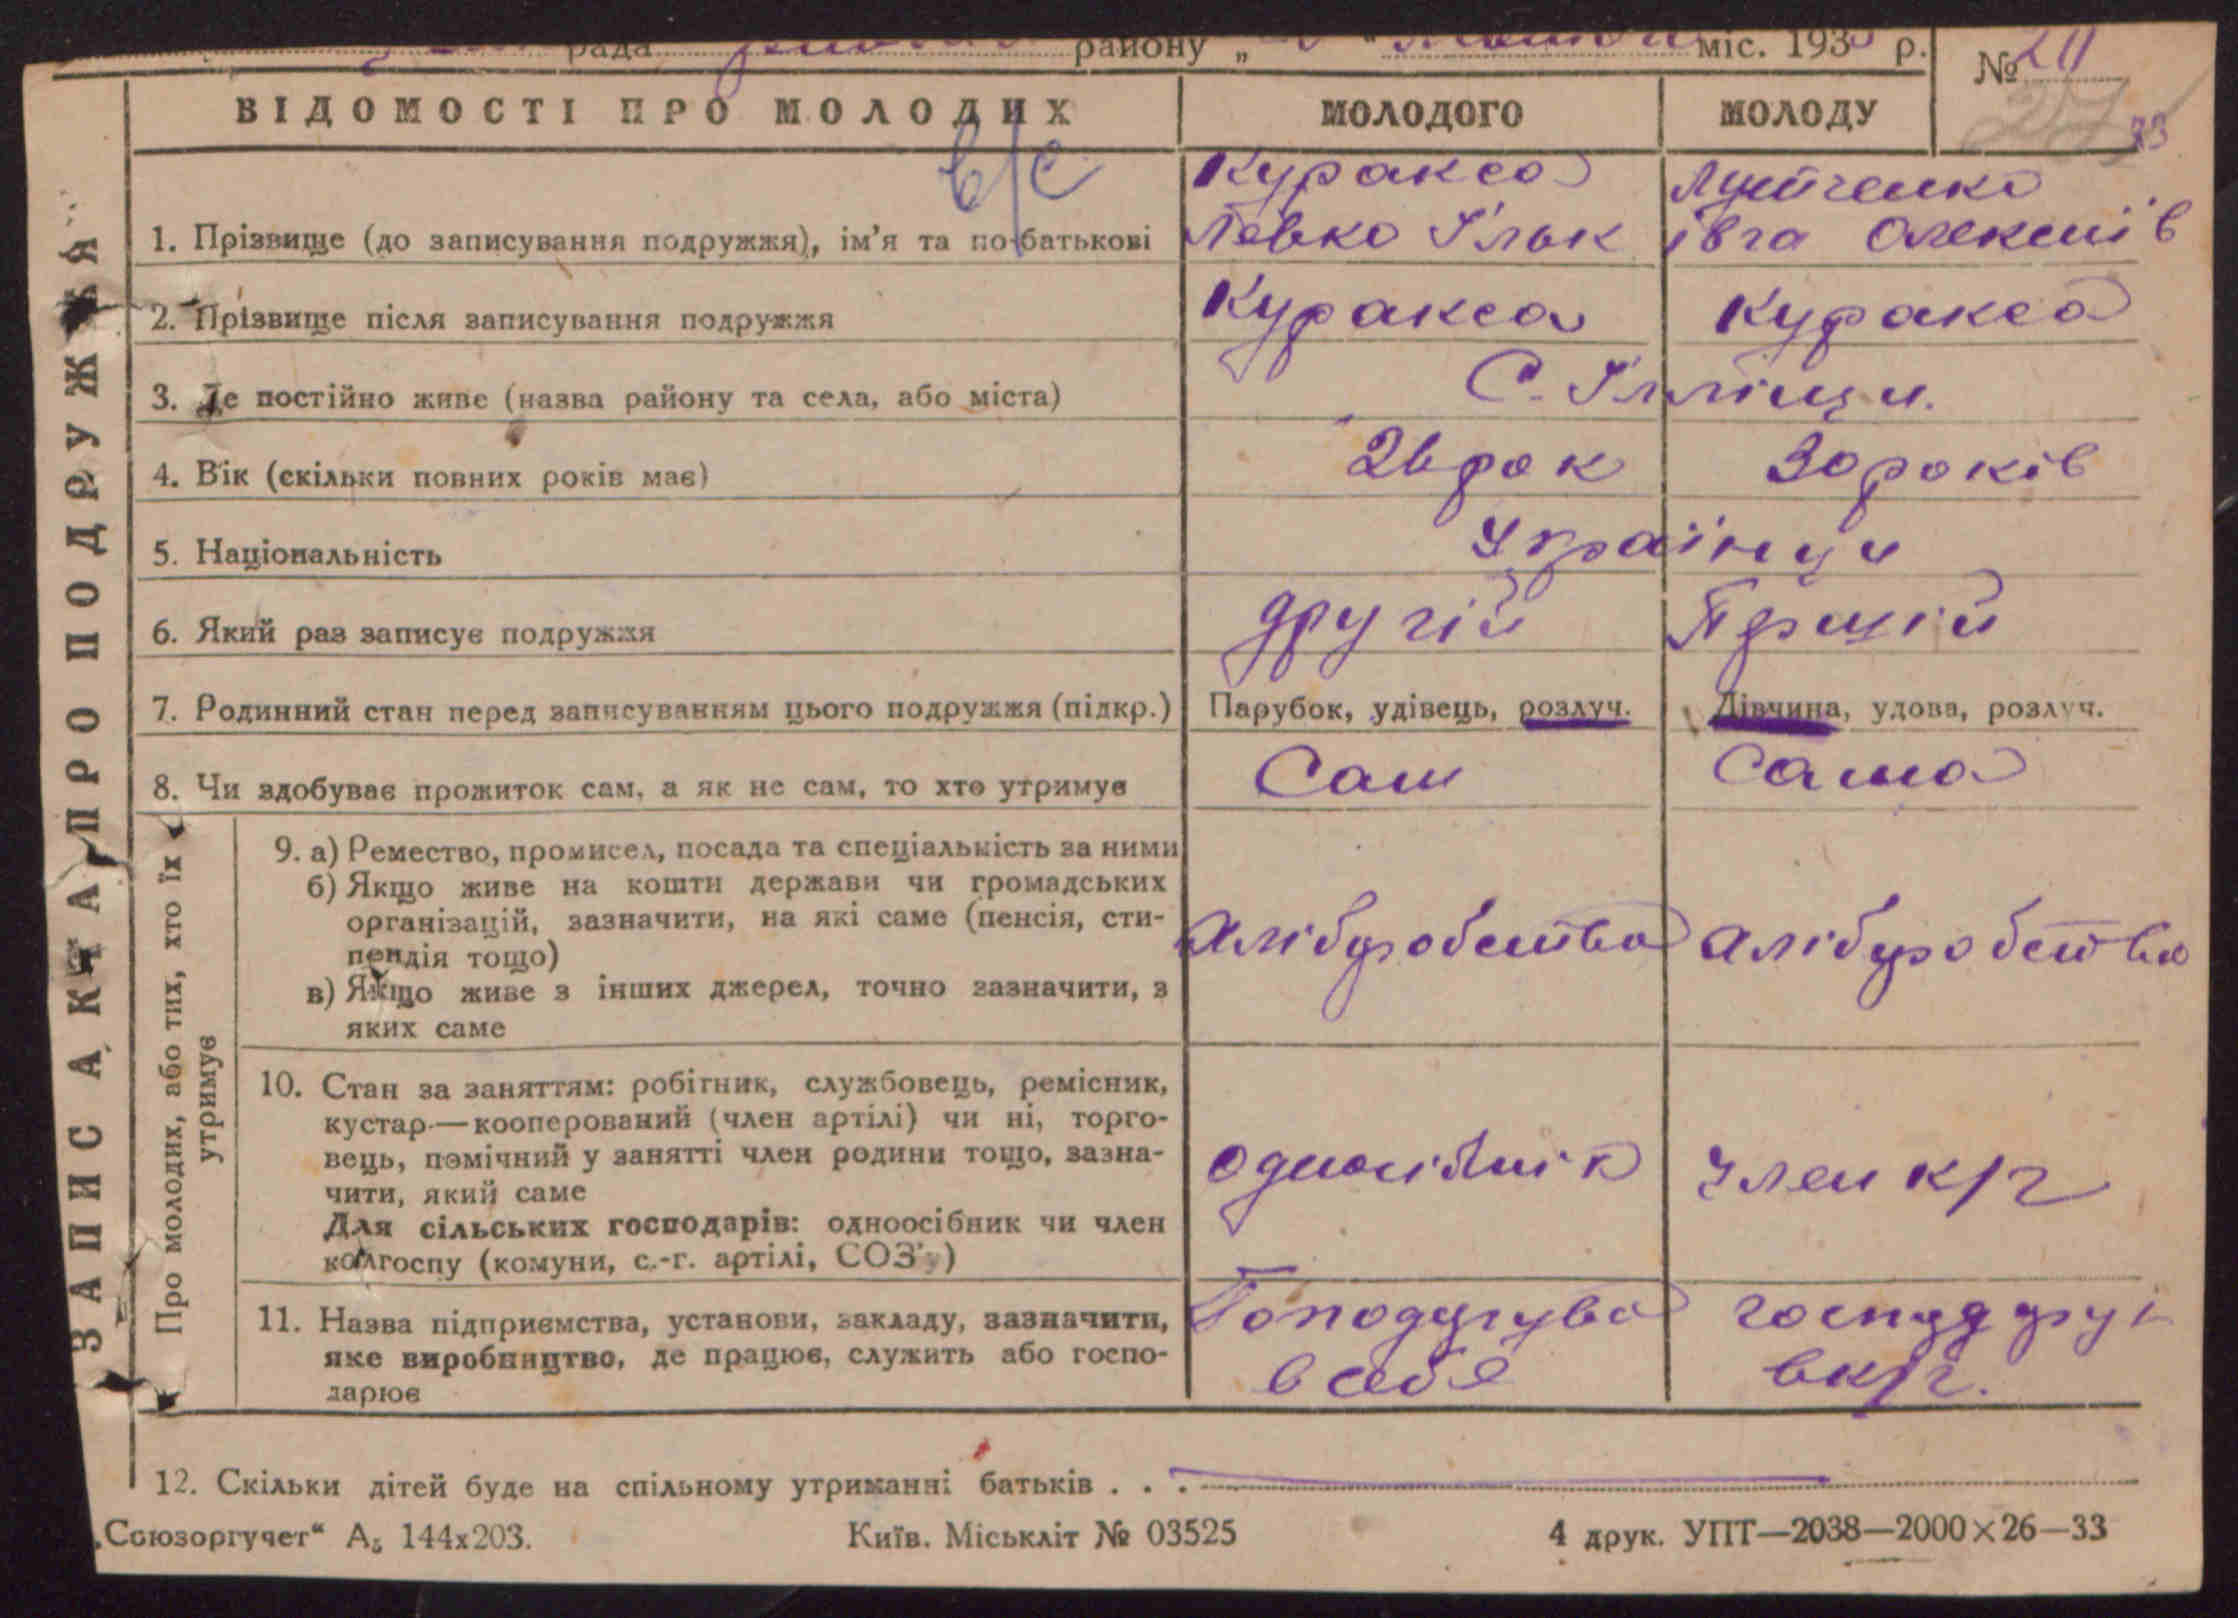 рада району „ “ міс. 193 р.
№ 20
ВІДОМОСТІ ПРО МОЛОДИХ МОЛОДОГО МОЛОДУ
27 33
в/с
ЗАПИС АКТА ПРО ПОДРУЖЖЯ
Куракса
1. Прізвище (до записування подружжя), ім’я та по-батькові Левко Ільк Івга Олексіїв
2. Прізвище після записування подружжя Куракса Куракса
3. Де постійно живе (назва району та села, або міста) С. Іллінци.
4. Вік (скільки повних років має) 26 рок 30 років
5. Національність Українци
6. Який раз записує подружжя другій Першій
7. Родинний стан перед записуванням цього подружжя (підкр.) Парубок, удівець, розлуч. Дівчина, удова, розлуч.
8. Чи здобуває прожиток сам, а як не сам, то хто утримує Сам Сама
Про молодих, або тих, хто їх утримує
9. а) Ремество, промисел, посада та спеціальність за ними
б) Якщо живе на кошти держави чи громадських
організацій, зазначити, на які саме (пенсія, сти-
пендія тощо)
хлібуробство хлібуробство
в) Якщо живе з інших джерел, точно зазначити, з
яких саме
10. Стан за заняттям: робітник, службовець, ремісник,
кустар—кооперований (член артілі) чи ні, торго-
вець, помічний у занятті член родини тощо, зазна-
чити, який саме
Для сільських господарів: одноосібник чи член
колгоспу (комуни, с.-г. артілі, СОЗ’у)
одиосібник член к/г
11. Назва підприємства, установи, закладу, зазначити,
яке виробництво, де працює, служить або госпо-
дарює
в себе в к/г.
12. Скільки дітей буде на спільному утриманні батьків . . .
„Союзоргучет“ А₅ 144х203. Київ. Міськліт № 03525 4 друк. УПТ—2038—2000×26—33